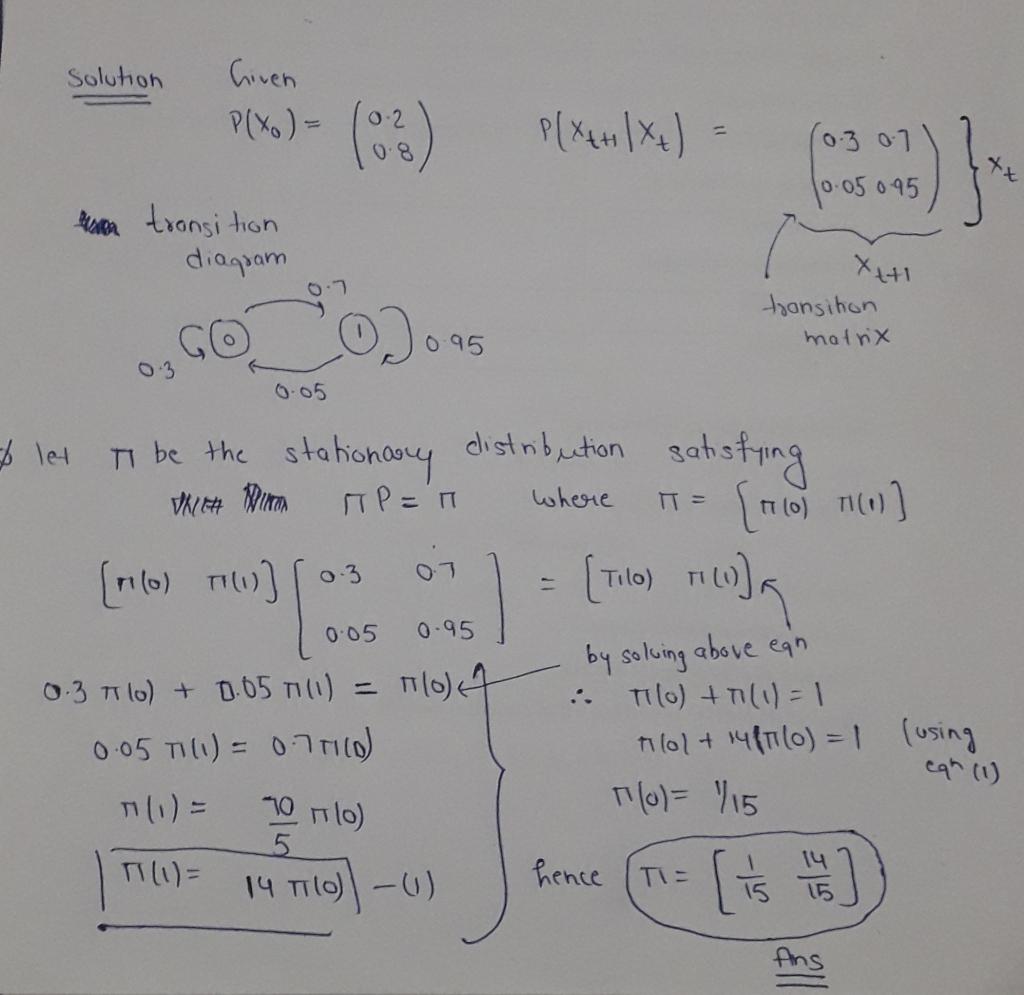 Solution Given
P(X₀) = (0.2 0.8) P(Xₜ₊₁|Xₜ) = (0.3 0.7
0.05 0.95) } Xₜ
Xₜ₊₁
transition
matrix
transition
diagram
0.7
0 1 0.95
0.3
0.05
let π be the stationary distribution satisfying
πP = π where π = [π(0) π(1)]
[π(0) π(1)] [0.3 0.7
0.05 0.95] = [π(0) π(1)]
by solving above eqn
0.3 π(0) + 0.05 π(1) = π(0)
0.05 π(1) = 0.7 π(0)
π(1) = 70/5 π(0)
π(1) = 14 π(0) – (1)
∴ π(0) + π(1) = 1
π(0) + 14 π(0) = 1 (using
eqn (1)
π(0) = 1/15
hence π = [1/15 14/15]
Ans